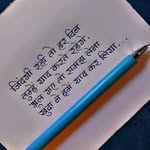 ज़िंदगी रही तो हर दिन
तुम्हें याद करते रहेंगे.
भूल गए तो समझ लेना
खुदा ने हमें याद कर लिया...